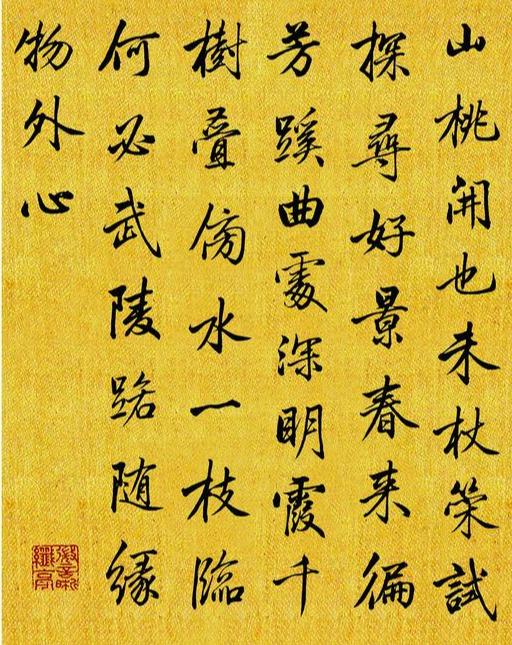 山桃開也未杖策試
探尋好景春来徧
芳蹊曲處深明霞千
樹疊傍水一枝臨
何必武陵路随緣
物外心